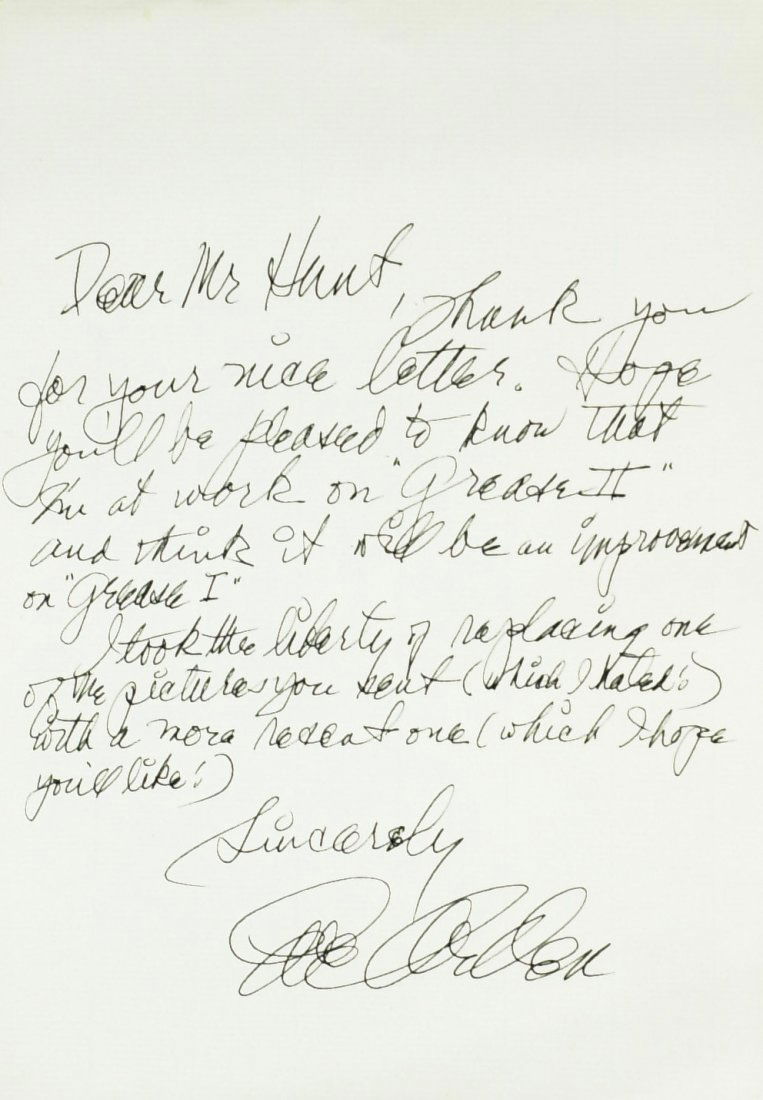 Dear Mr Hunt,
Thank you
for your nice letter. Hope
you'll be pleased to know that
I'm at work on "Grease II"
and think it will be an improvement
on "Grease I"
I took the liberty of replacing one
of the pictures you sent (which I hated!)
with a more recent one (which I hope
you'll like!)
Sincerely
Eve Arden